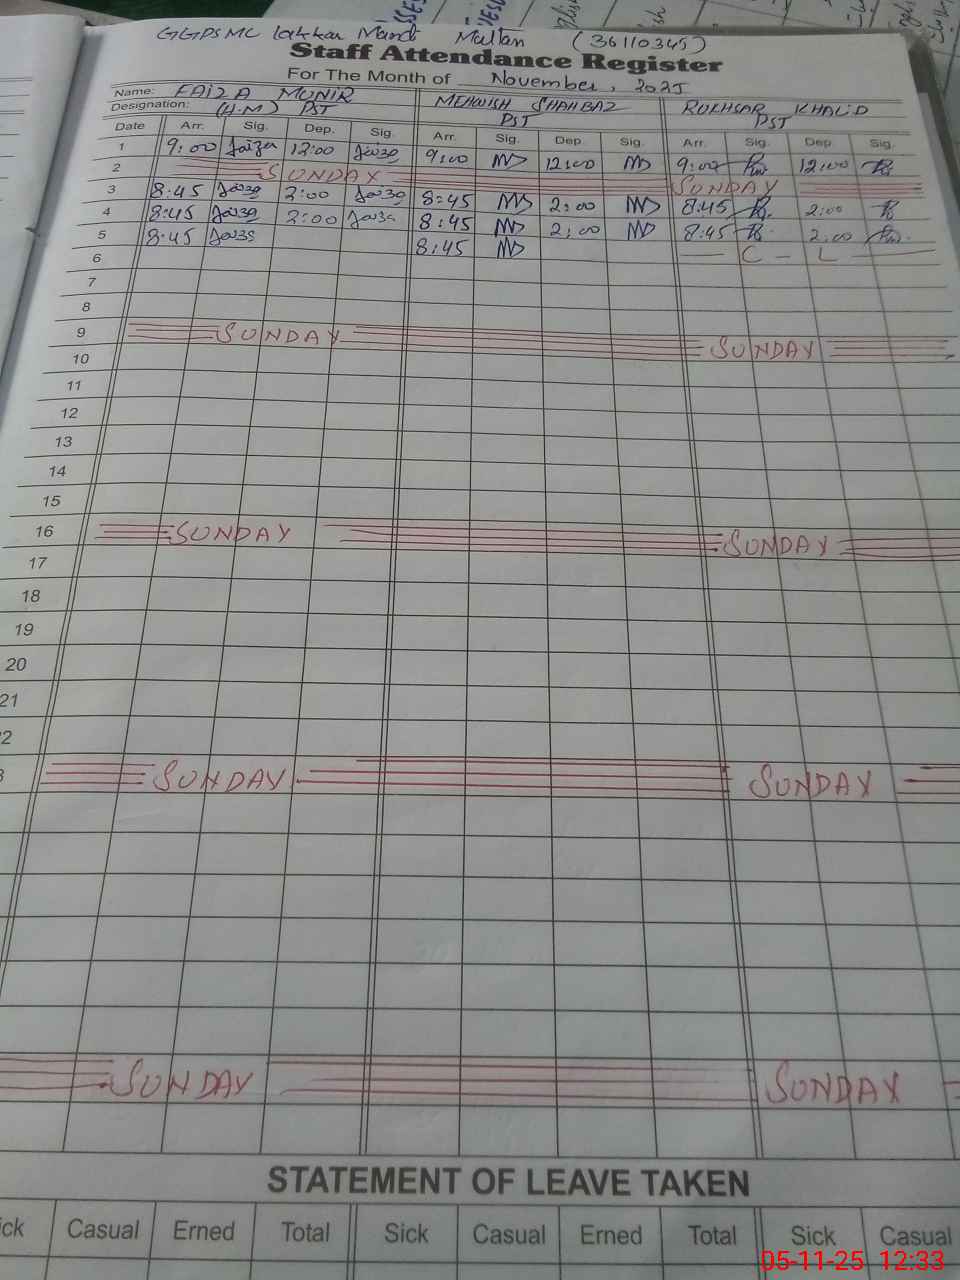 GGPSMC Lakkar Mandi Multan (36110345)
Staff Attendance Register
For The Month of November, 2025
Name: FAIZA MUNIR MEHWISH SHAHBAZ RUKHSAR KHALID
Designation: (H.M) PST PST PST
Date Arr. Sig. Dep. Sig. Arr. Sig. Dep. Sig. Arr. Sig. Dep. Sig.
1 9:00 Faiza 12:00 Faiza 9:00 12:00 9:00 12:00
2 SUNDAY SUNDAY
3 8:45 Faiza 2:00 Faiza 8:45 2:00 8:45 2:00
4 8:45 Faiza 2:00 Faiza 8:45 2:00 8:45 2:00
5 8:45 Faiza 8:45 — C — L —
6
7
8
9 SUNDAY SUNDAY
10
11
12
13
14
15
16 SUNDAY SUNDAY
17
18
19
20
21
2
3 SUNDAY SUNDAY
SUNDAY SUNDAY
STATEMENT OF LEAVE TAKEN
ick Casual Erned Total Sick Casual Erned Total Sick Casual
05-11-25 12:33